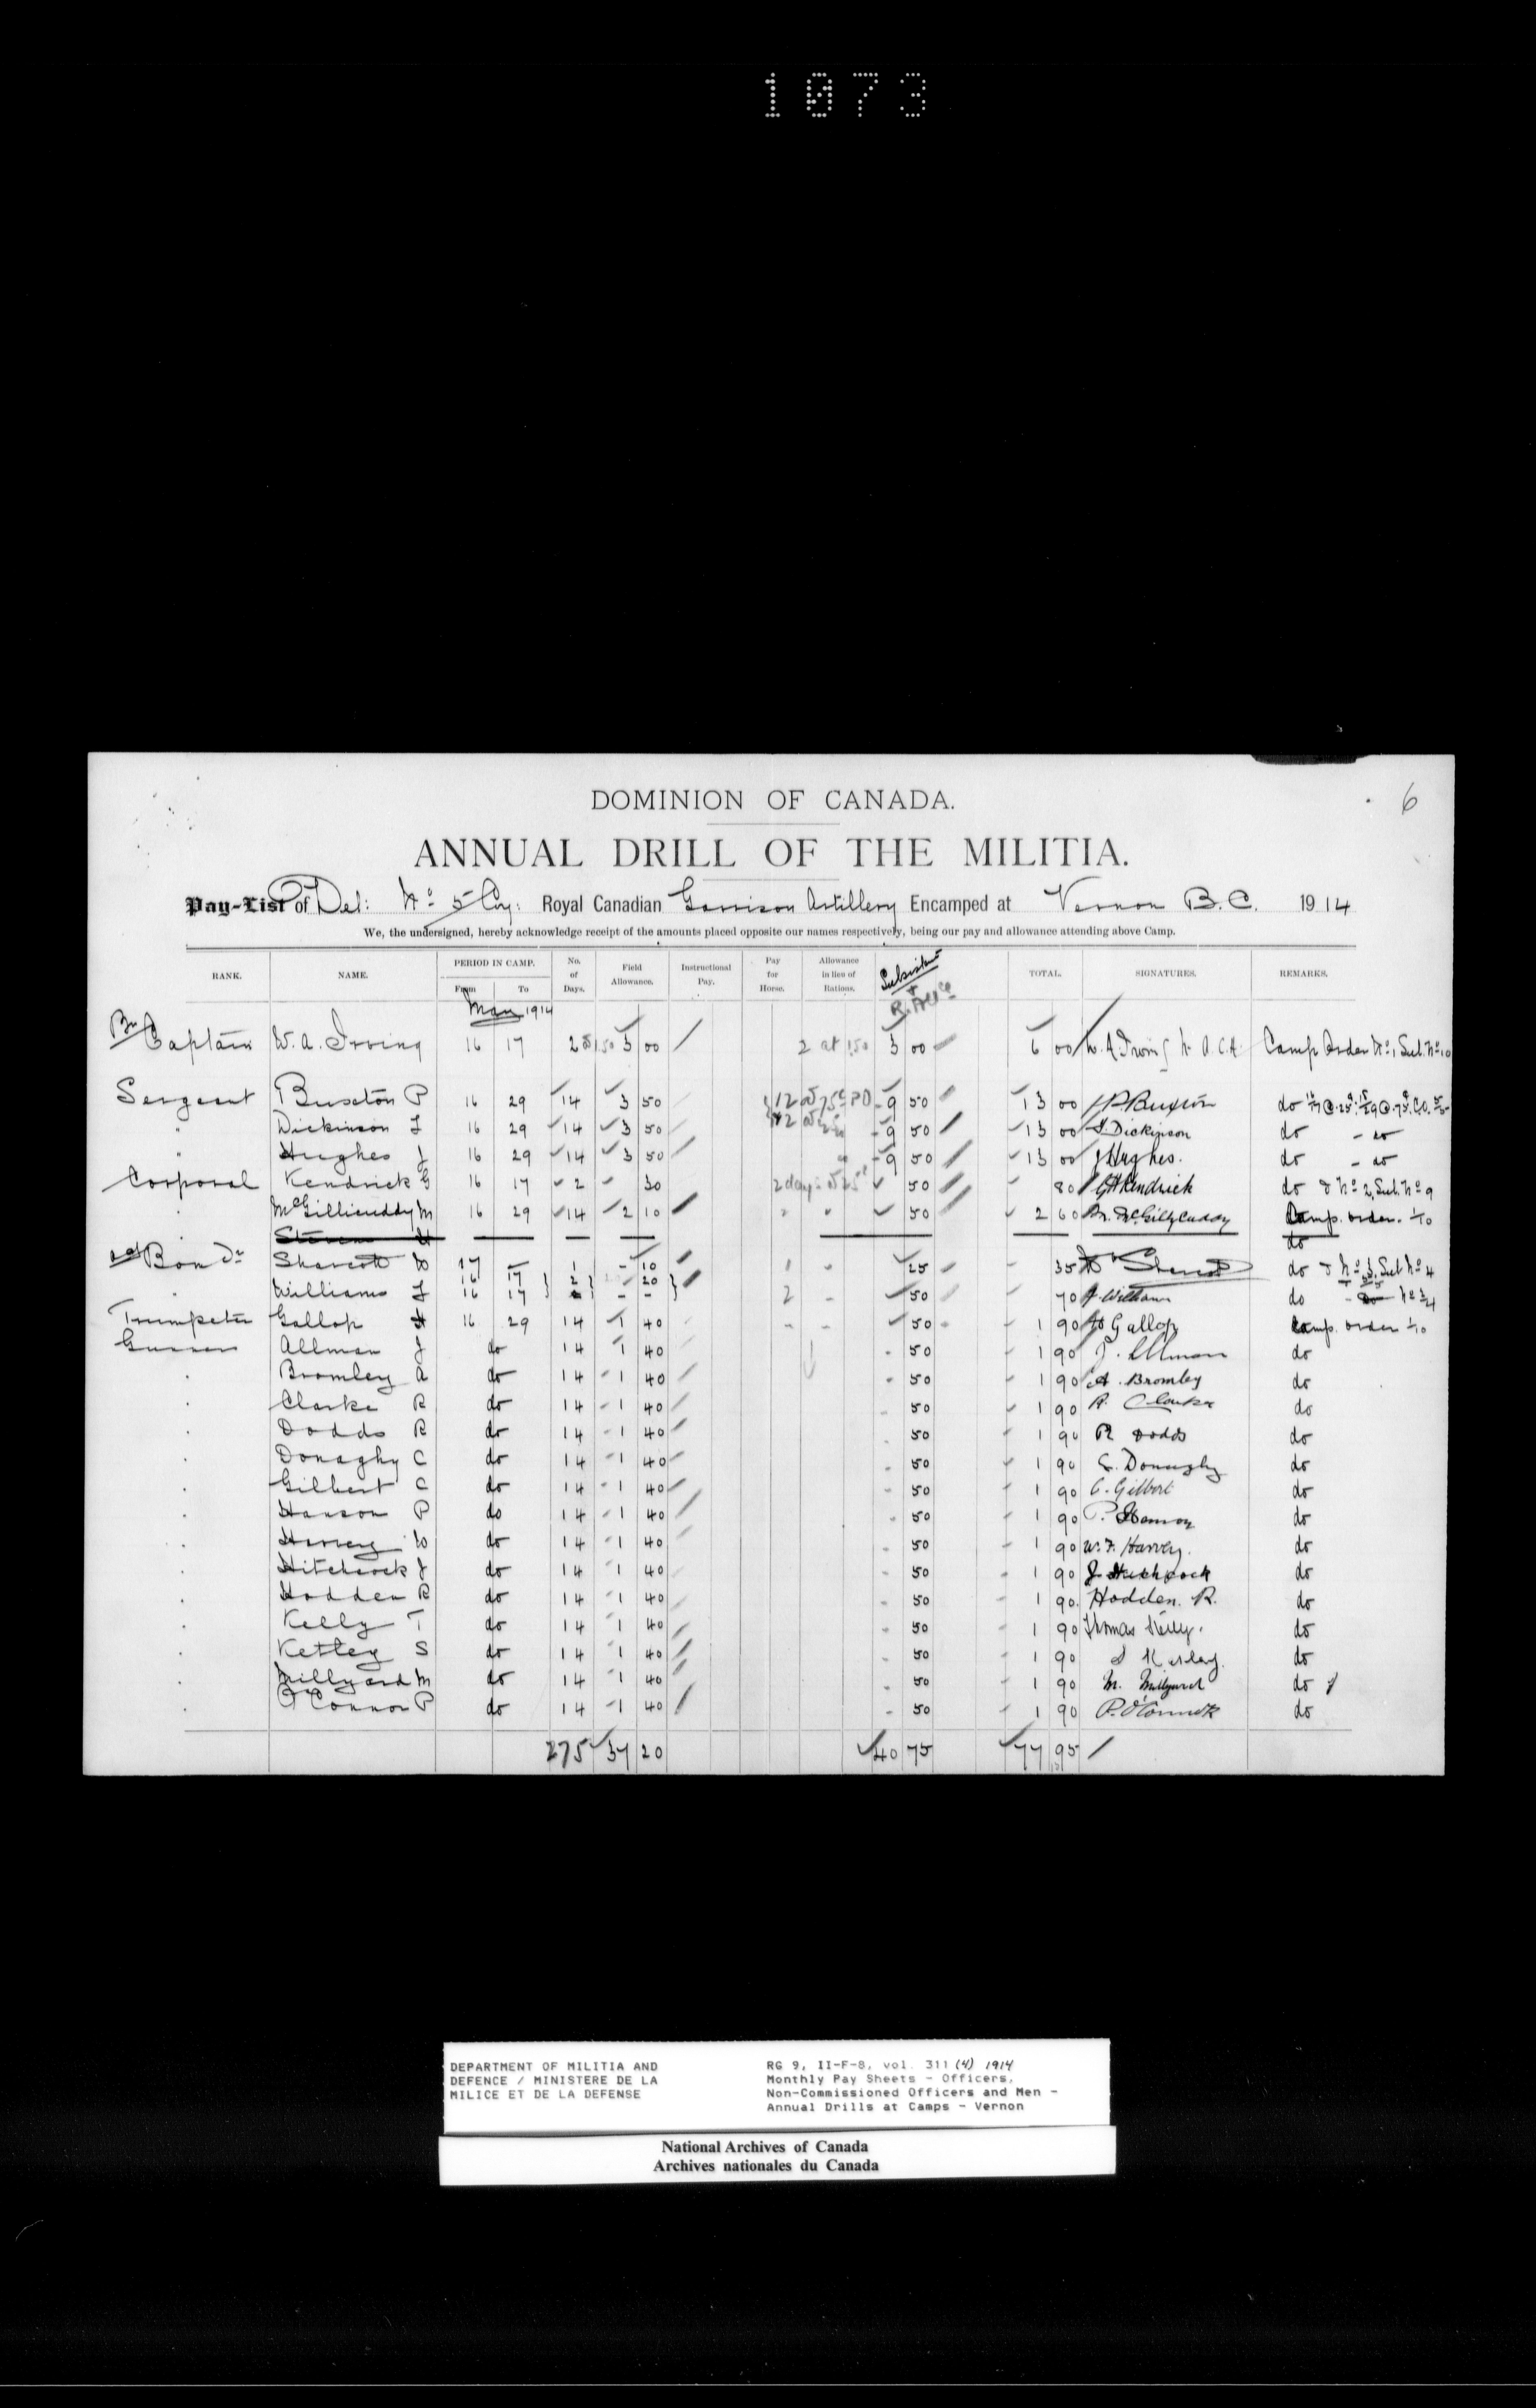 1073
6
DOMINION OF CANADA.
ANNUAL DRILL OF THE MILITIA.
Pay-List of Det: No 5 Coy: Royal Canadian Garrison Artillery Encamped at Vernon B.C. 1914
We, the undersigned, hereby acknowledge receipt of the amounts placed opposite our names respectively, being our pay and allowance attending above Camp.
RANK. NAME. PERIOD IN CAMP. From To No. of Days. Field Allowance. Instructional Pay. Pay for Horse. Allowance in lieu of Rations. Subsistce + R. All'ce TOTAL. SIGNATURES. REMARKS.
May 1914
Captain W. A. Irving 16 17 2 1.50 3 00 2 at 1.50 3 00 6 00 W. A. Irving Camp Order No 1, Sub. No 10
Sergeant Buxton P 16 29 14 3 50 9 50 13 00 P. Buxton do
" Dickinson J 16 29 14 3 50 9 50 13 00 J. Dickinson do - do
" Hughes J 16 29 14 3 50 9 50 13 00 J Hughes. do - do
Corporal Kendrick G 16 17 2 30 2 days @ 25c 50 80 G H Kendrick do & No 2, Sub. No 9
" McGillicuddy M 16 29 14 2 10 50 2 60 M. McGillycuddy Camp. order. 1/10
do
Bomdr Sharcott W 17 - 1 - 10 1 " 25 35 do & No 3, Sub No 4
" Williams J 16 17 2 20 2 - 50 70 J Williams do
Trumpeter Gallop H 16 29 14 1 40 50 1 90 H Gallop Camp. order 1/10
Gunner Allman J do 14 1 40 50 1 90 J. Allman do
" Bromley A do 14 1 40 50 1 90 A. Bromley do
" Clarke R do 14 1 40 50 1 90 R. Clarke do
" Dodds R do 14 1 40 50 1 90 R Dodds do
" Donaghy C do 14 1 40 50 1 90 C. Donaghy do
" Gilbert C do 14 1 40 50 1 90 C. Gilbert do
" Hanson P do 14 1 40 50 1 90 P. Hanson do
" Harvey W do 14 1 40 50 1 90 W. F. Harvey. do
" Hitchcock J do 14 1 40 50 1 90 J. Hitchcock do
" Hodden R do 14 1 40 50 1 90. Hodden. R. do
" Kelly T do 14 1 40 50 1 90 Thomas Kelly. do
" Ketley S do 14 1 40 50 1 90 S Ketley. do
" Millyard M do 14 1 40 50 1 90 M. Millyard do
" O'Connor P do 14 1 40 50 1 90 P. O'Connor do
275 37 20 40 75 77 95
DEPARTMENT OF MILITIA AND
DEFENCE / MINISTERE DE LA
MILICE ET DE LA DEFENSE
RG 9, II-F-8, vol. 311 (4) 1914
Monthly Pay Sheets - Officers,
Non-Commissioned Officers and Men -
Annual Drills at Camps - Vernon
National Archives of Canada
Archives nationales du Canada